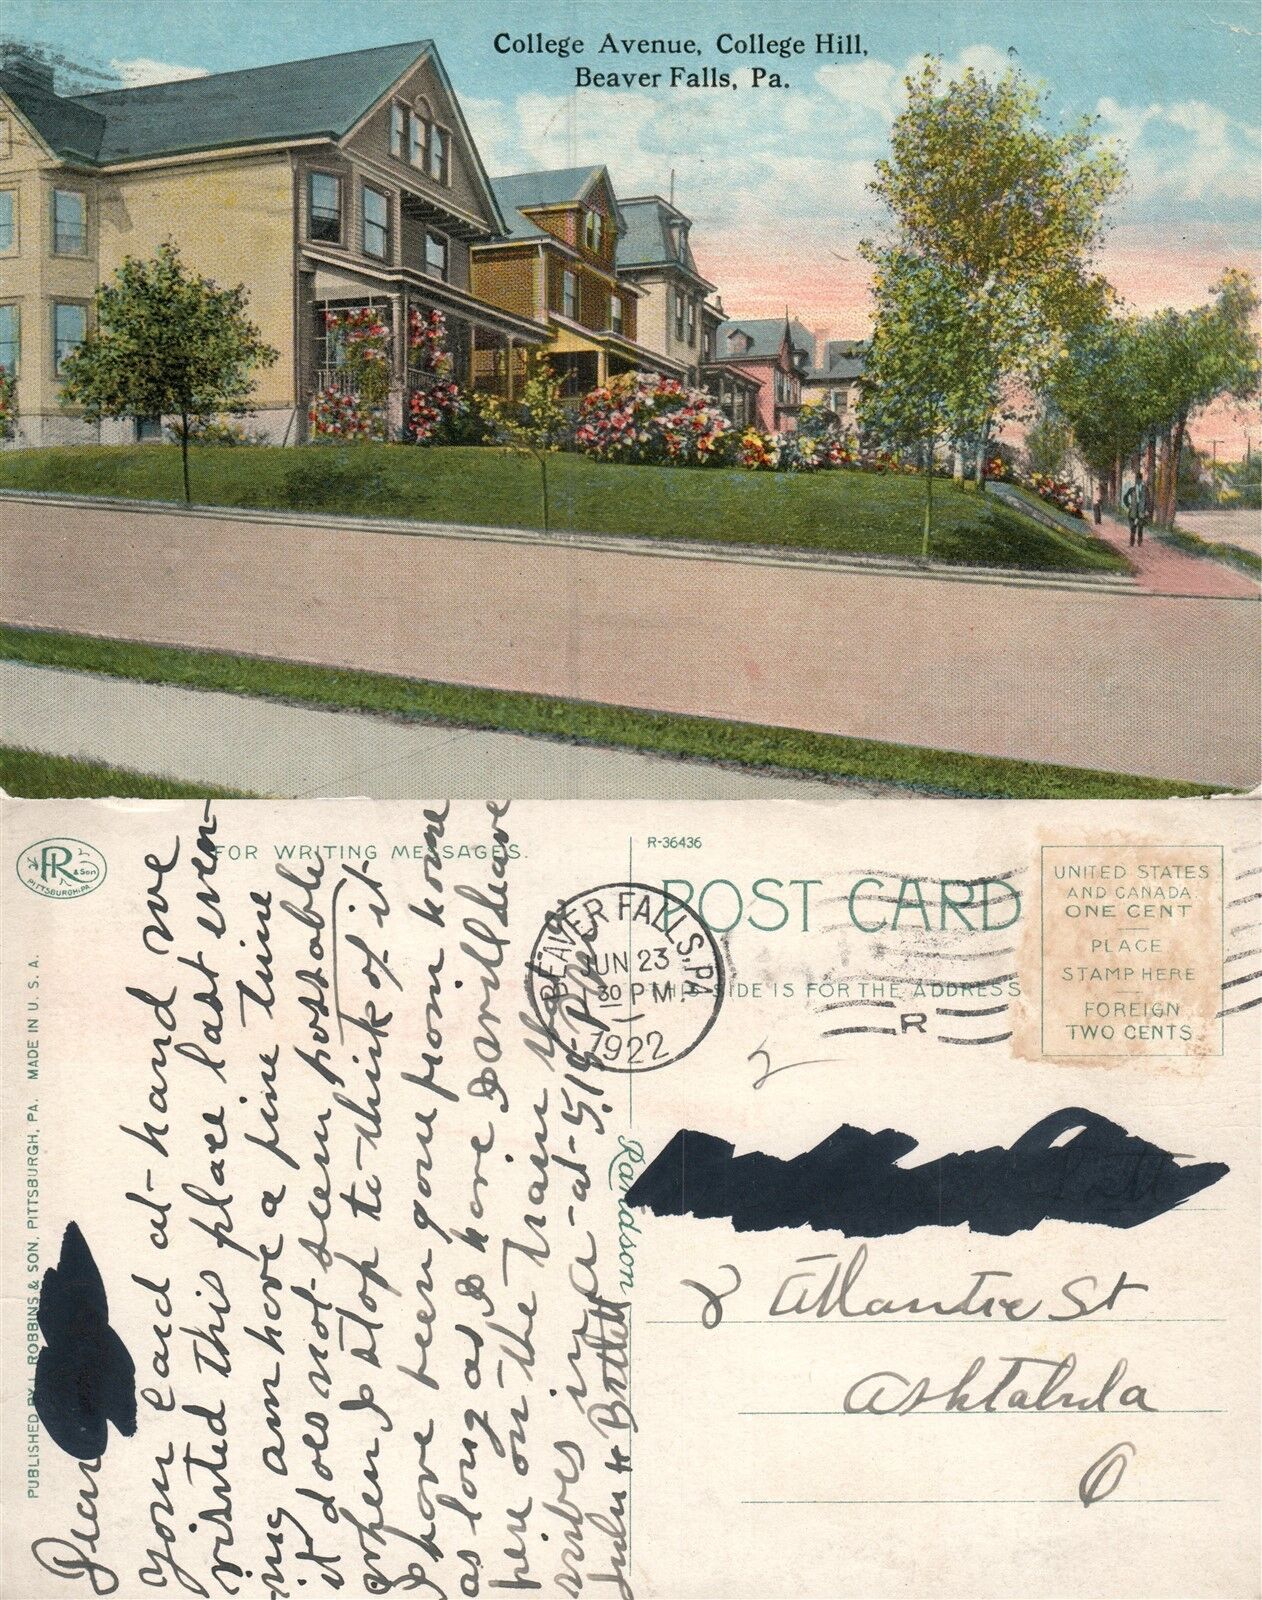 College Avenue, College Hill,
Beaver Falls, Pa.
R & Son
PITTSBURGH, PA.
FOR WRITING MESSAGES.
R-36436
POST CARD
THIS SIDE IS FOR THE ADDRESS
UNITED STATES
AND CANADA
ONE CENT
PLACE
STAMP HERE
FOREIGN
TWO CENTS
BEAVER FALLS, PA
JUN 23
30 PM
1922
R
2
PUBLISHED BY I. ROBBINS & SON, PITTSBURGH, PA. MADE IN U. S. A.
Dear
your card at-hand we
visited this place last even-
ing am have a fine time
it does not-seem possable
when I stop to think of it
I have been gone from home
as long as I have I will leave
here on the train that
in a-at-5.19
Randson
Atlantic St
Ashtabula
O